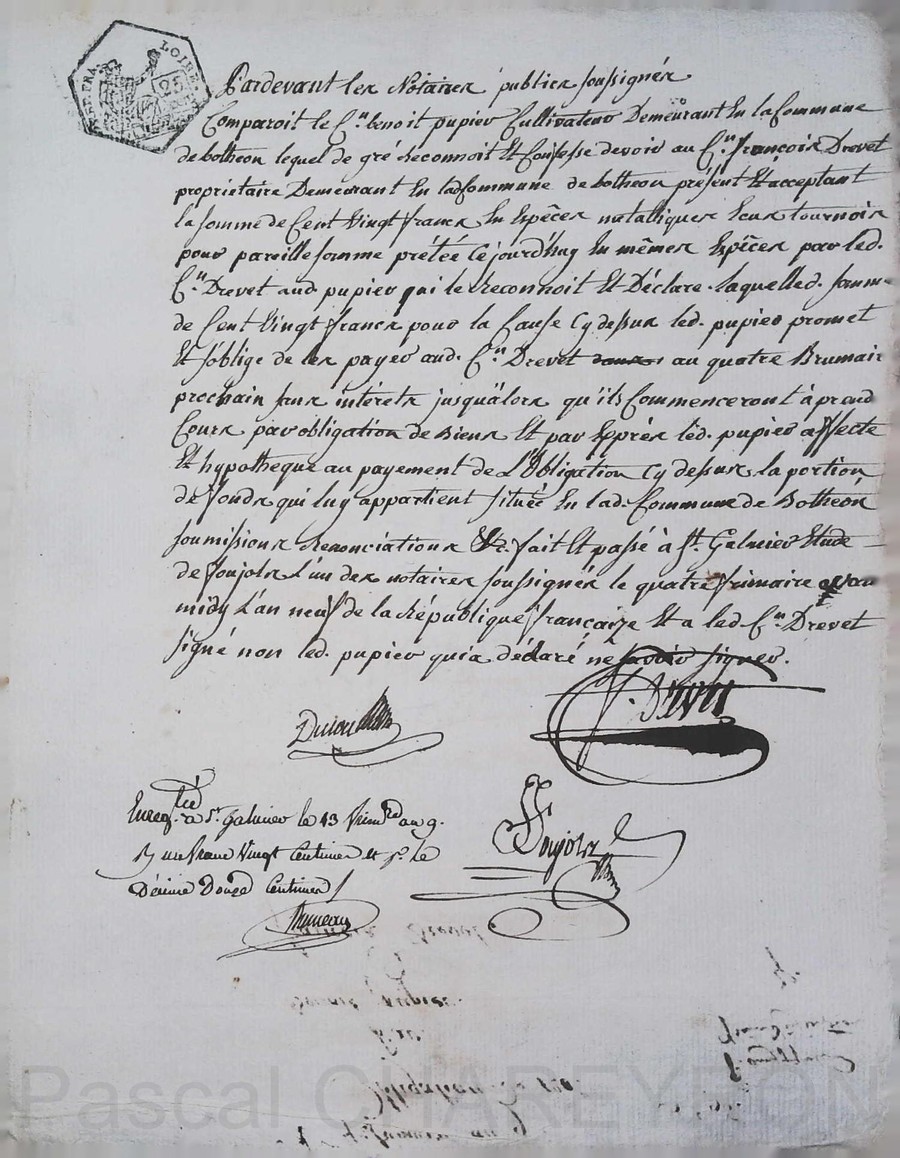 LOIRE.
25
Pardevant les Notaires publics soussignés
Comparoit le C.en benoit pupier Cultivateur Demeurant En la Commune
de botheon lequel de gré Reconnoit Et Confesse devoir au C.en françois Drevet
propriétaire Demeurant En lad Commune de botheon présent Et acceptant
la somme de Cent Vingt francs En Espèces métalliques Ecus tournois
pour pareille somme prêtée Cejourd'huy En mêmes Espèces par led.
C.en Drevet aud. pupier qui le Reconnoit Et Déclare. laquelle d. somme
de Cent Vingt francs pour la Cause Cy dessus led. pupier promet
Et s'oblige de les payer aud. C.en Drevet au quatre Brumaire
prochain sans intérets jusqu'àlors qu'ils Commenceront à prend
Cours par obligation de Biens Et par Exprès led. pupier affecte
Et hypotheque au payement de L'Obligation Cy dessus la portion
de fonds qui luy appartient située En lad. Commune de Botheon
soumissions Renonciations &c. fait Et passé à St. Galmier Etude
de Soujols L'un des notaires soussignés le quatre frimaire avan
midy L'an neuf de la République françaize Et a led. C.en Drevet
signé non led. pupier qui a déclaré ne savoir signer.
f. Drevet
Soujols
Enregtré à St. galmier le 13 frim. an 9.
un franc Vingt Centimes et pr. le
Décime Douze Centimes
Pascal CHAREYRON